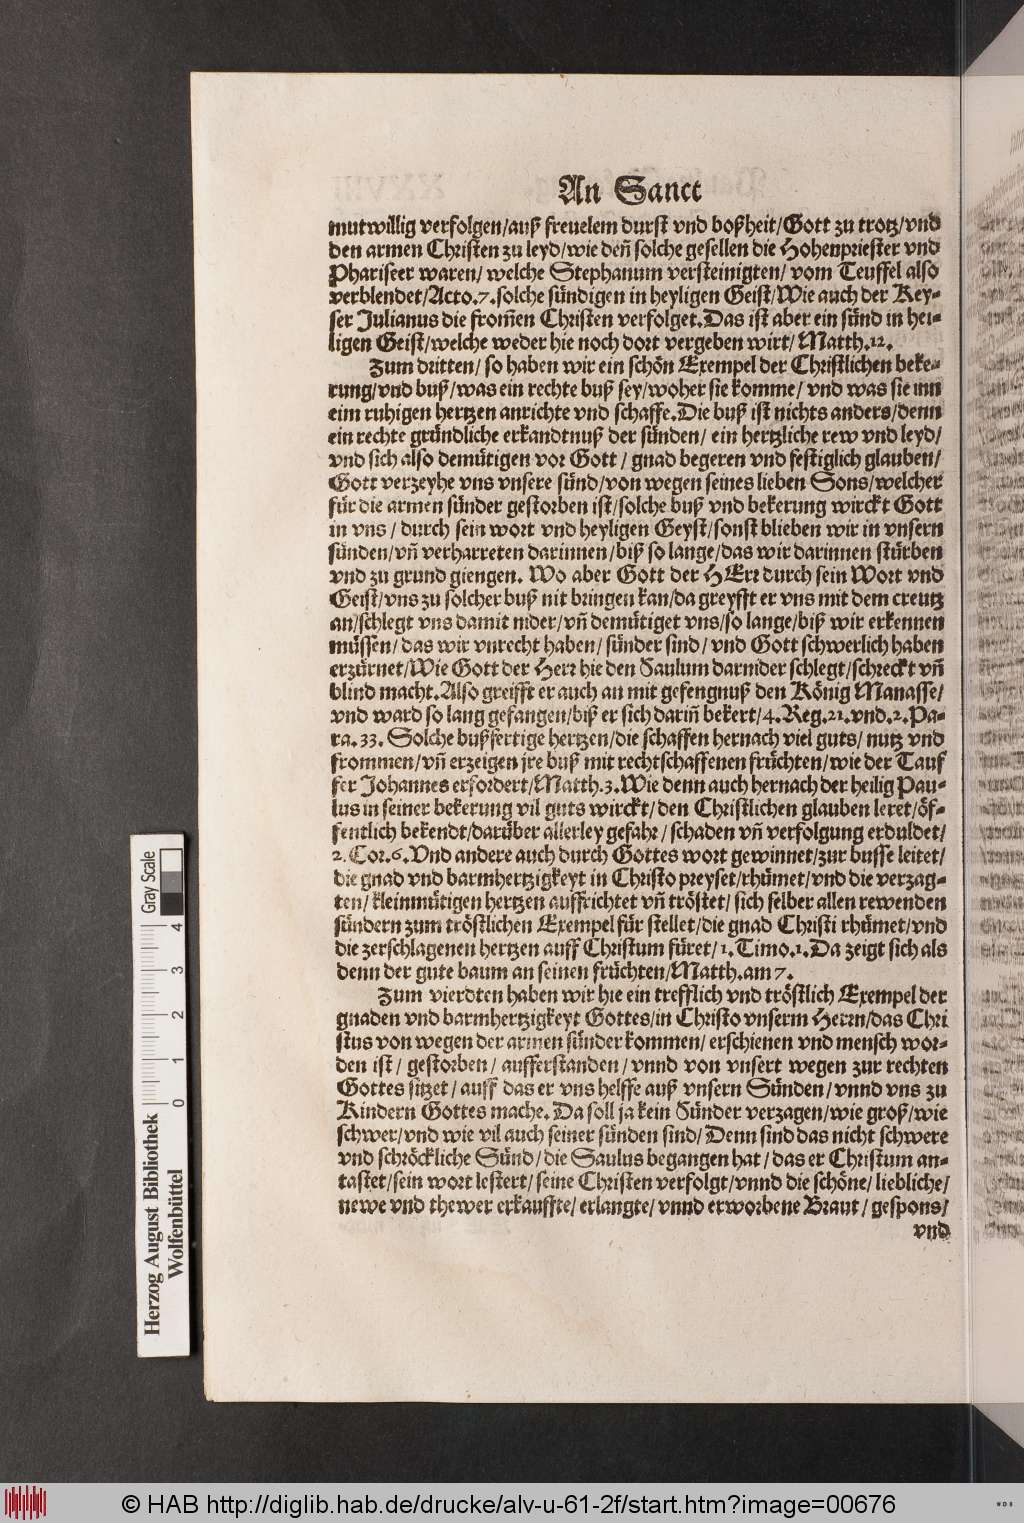 An Sanct
mutwillig verfolgen/auß freuelem durst vnd boßheit/Gott zu trotz/vnd
den armen Christen zu leyd/wie deñ solche gesellen die Hohenpriester vnd
Phariseer waren/ welche Stephanum versteinigten/ vom Teuffel also
verblendet/Acto.7.solche sündigen in heyligen Geist/Wie auch der Key-
ser Julianus die from̃en Christen verfolget.Das ist aber ein sünd in hei-
ligen Geist/welche weder hie noch dort vergeben wirt/ Matth.12.
Zum dritten/ so haben wir ein schön Exempel der Christlichen beke-
rung/vnd buß/was ein rechte buß sey/woher sie komme/ vnd was sie inn
eim ruhigen hertzen anrichte vnd schaffe.Die buß ist nichts anders/denn
ein rechte gründliche erkandtnuß der sünden/ ein hertzliche rew vnd leyd/
vnd sich also demütigen vor Gott / gnad begeren vnd festiglich glauben/
Gott verzeyhe vns vnsere sünd/von wegen seines lieben Sons/welcher
für die armen sünder gestorben ist/solche buß vnd bekerung wirckt Gott
in vns / durch sein wort vnd heyligen Geyst/sonst blieben wir in vnsern
sünden/vñ verharreten darinnen/biß so lange/das wir darinnen stürben
vnd zu grund giengen. Wo aber Gott der HErr durch sein Wort vnd
Geist/vns zu solcher buß nit bringen kan/da greyfft er vns mit dem creutz
an/schlegt vns damit nider/vñ demütiget vns/so lange/biß wir erkennen
müssen/das wir vnrecht haben/ sünder sind/ vnd Gott schwerlich haben
erzürnet/Wie Gott der Herr hie den Saulum darnider schlegt/schreckt vñ
blind macht.Also greifft er auch an mit gefengnuß den König Manasse/
vnd ward so lang gefangen/biß er sich dariñ bekert/4.Reg.21.vnd.2.Pa-
ra.33. Solche bußfertige hertzen/die schaffen hernach viel guts/ nutz vnd
frommen/vñ erzeigen jre buß mit rechtschaffenen früchten/wie der Tauf
fer Johannes erfordert/Matth.3.Wie denn auch hernach der heilig Pau-
lus in seiner bekerung vil guts wirckt/den Christlichen glauben leret/öf-
fentlich bekendt/darüber allerley gefahr/schaden vñ verfolgung erduldet/
2.Cor.6.Vnd andere auch durch Gottes wort gewinnet/zur busse leitet/
die gnad vnd barmhertzigkeyt in Christo preyset/rhümet/vnd die verzag-
ten/kleinmütigen hertzen auffrichtet vñ tröstet/ sich selber allen rewenden
sündern zum tröstlichen Exempel für stellet/die gnad Christi rhümet/vnd
die zerschlagenen hertzen auff Christum füret/1.Timo.1.Da zeigt sich als
denn der gute baum an seinen früchten/Matth.am 7.
Zum vierdten haben wir hie ein trefflich vnd tröstlich Exempel der
gnaden vnd barmhertzigkeyt Gottes/in Christo vnserm Herrn/das Chri
stus von wegen der armen sünder kommen/ erschienen vnd mensch wor-
den ist/ gestorben/ aufferstanden/ vnnd von vnsert wegen zur rechten
Gottes sitzet/ auff das er vns helffe auß vnsern Sünden/ vnnd vns zu
Kindern Gottes mache. Da soll ja kein Sünder verzagen/wie groß/wie
schwer/vnd wie vil auch seiner sünden sind/ Denn sind das nicht schwere
vnd schröckliche Sünd/die Saulus begangen hat/das er Christum an-
tastet/sein wort lestert/seine Christen verfolgt/vnnd die schöne/ liebliche/
newe vnd thewer erkauffte/erlangte/ vnnd erworbene Braut/ gespons/
vnd
Gray Scale
4
3
2
1
0
Herzog August Bibliothek
Wolfenbüttel
© HAB http://diglib.hab.de/drucke/alv-u-61-2f/start.htm?image=00676